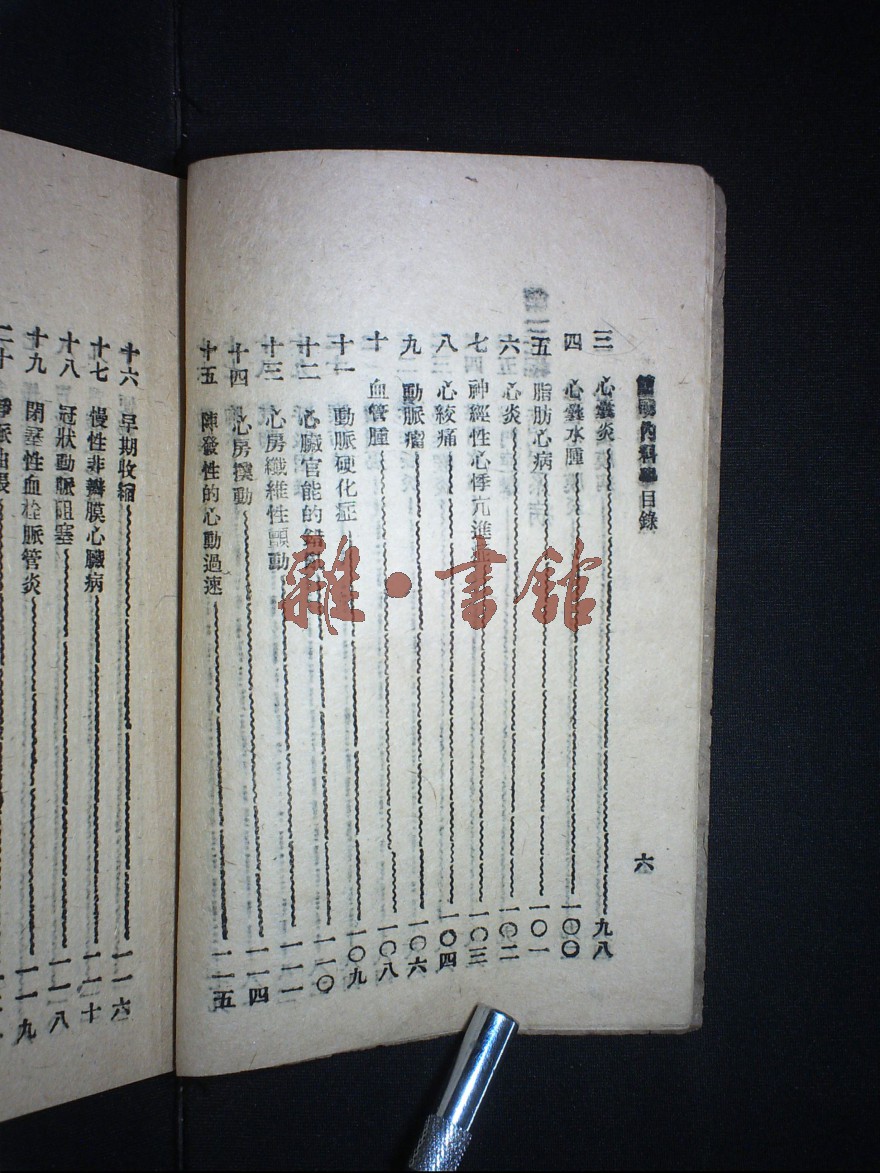 簡明內科學目錄
六
三 心囊炎 九八
四 心囊水腫 一〇〇
五 脂肪心病 一〇一
六 心炎 一〇二
七 神經性心悸亢進症 一〇三
八 心絞痛 一〇四
九 動脈瘤 一〇六
十 血管腫 一〇八
十一 動脈硬化症 一〇九
十二 心臟官能的錯 一一〇
十三 心房纖維性顫動 一一一
十四 心房撲動 一一四
十五 陣發性的心動過速 一一五
十六 早期收縮 一一六
十七 慢性非瓣膜心臟病 一一十
十八 冠狀動脈阻塞 一一八
十九 閉塞性血栓脈管炎 一一九
二十
雜·書館